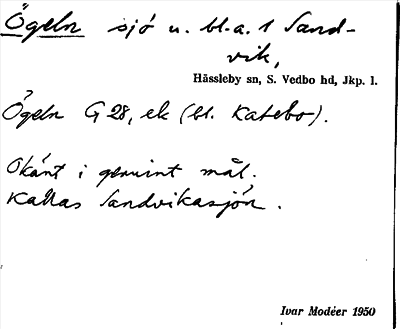 Ögeln sjö u. bl. a. 1 Sand-
vik,
Hässleby sn, S. Vedbo hd, Jkp. l.
Ögeln G 28, ek (bl. Katebo).
Okänt i genuint mål.
Kallas Sandvikasjön.
Ivar Modéer 1950